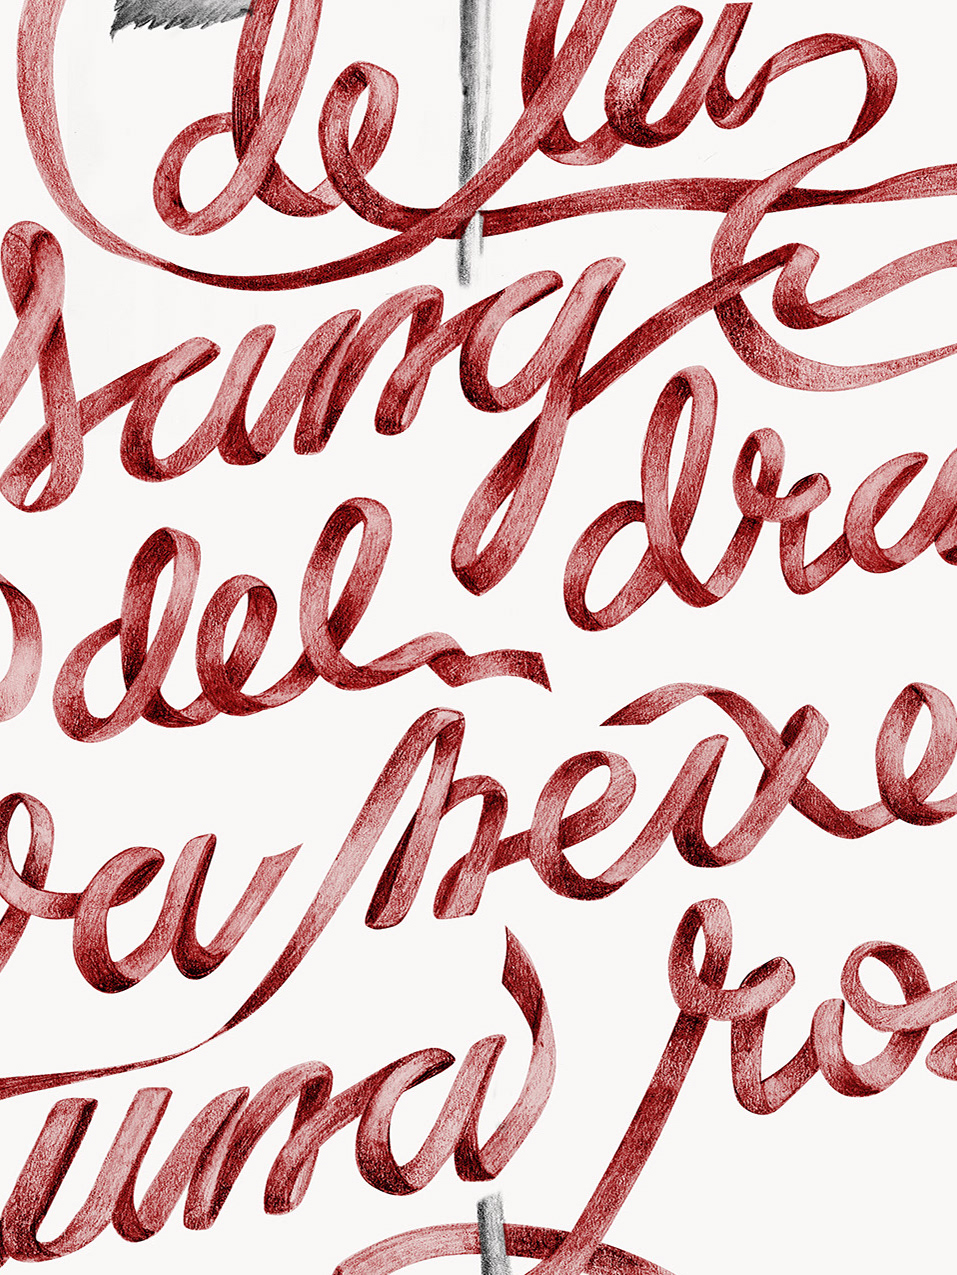 de la
sang
del dra
va neixe
una ro